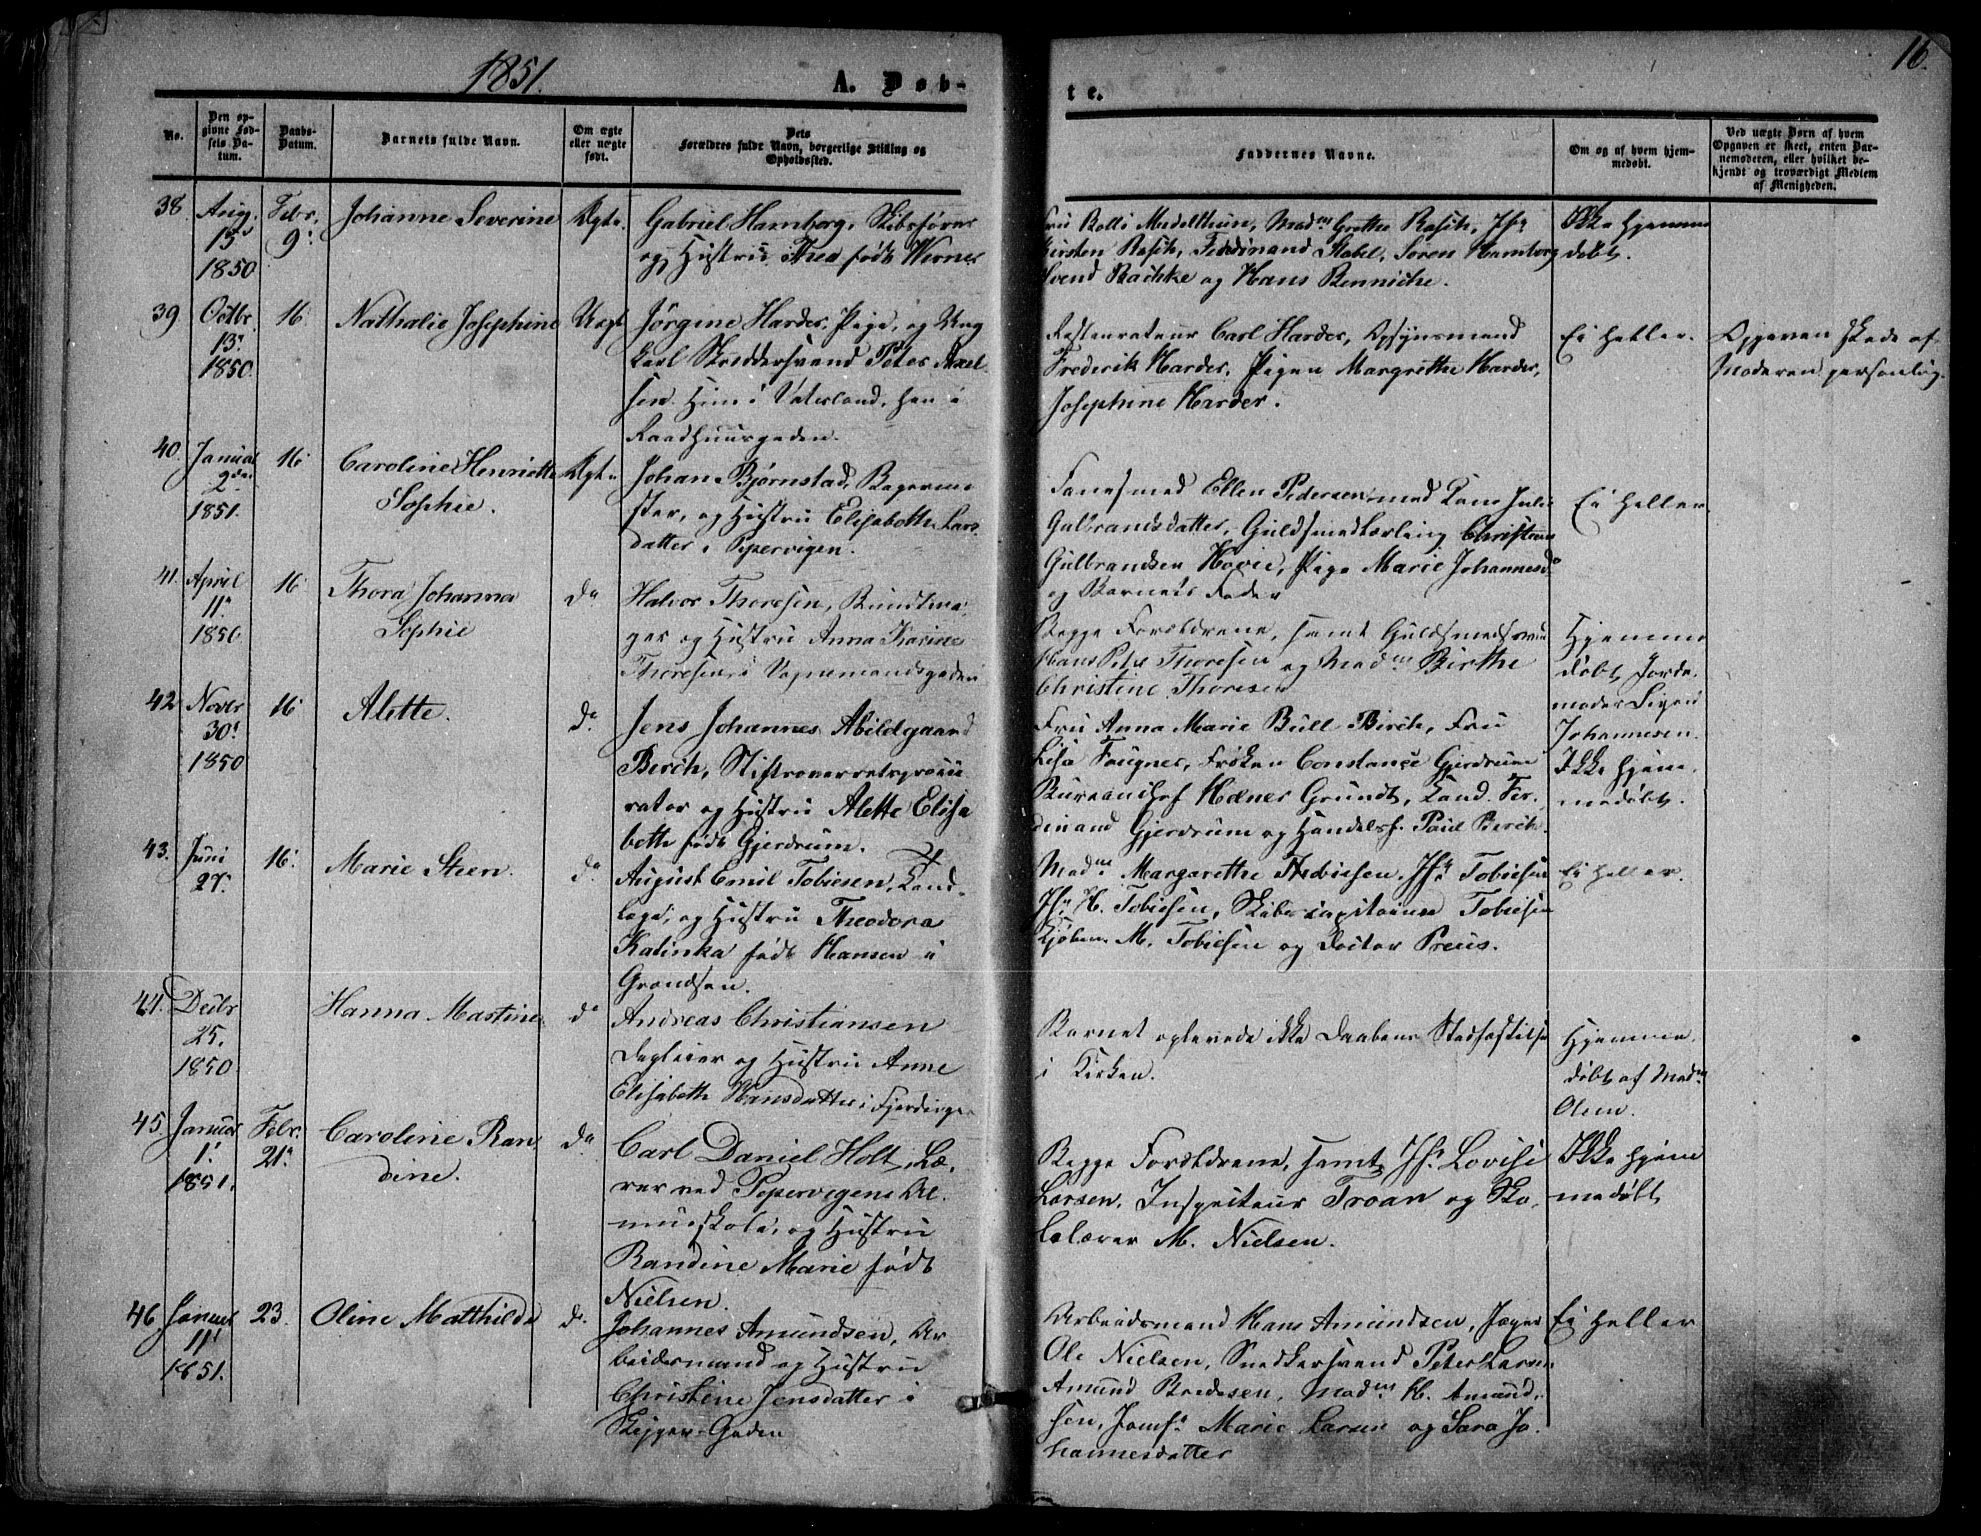 1851.
A. Døb-
te.
16.
No.
Den op-
givne Fød-
sels Da-
tum.
Daabs-
Datum.
Barnets fulde Navn.
Om ægte
eller uægte
født.
Dets
Forældres fulde Navn, borgerlige Stilling og
Opholdssted.
Faddernes Navne.
Om og af hvem hjem-
medøbt.
Ved uægte Børn af hvem
Opgaven er skeet, enten Bar-
nemoderen, eller hvilket be-
kjendt og troværdigt Medlem
af Menigheden.
38.
Aug.
15
1850
Febr.
9.
Johanne Severine
Ægte.
Gabriel Hamborg, Skibsfører
og Hustru Thea født Werner
Fru Bolli Medelthun, Madm Grethe Rasch, Jfr
Kirsten Rasch, Ferdinand Stabel, Søren Hamborg
Svend Bachke og Hans Benniche.
Ikke hjemme
døbt.
39
Octbr.
13.
1850.
16.
Nathalie Josephine
Uægt
Jørgine Harder, Pige, og Ung
karl Skreddersvend Peter Axel
sen. Hun i Vaterland, han i
Raadhuusgaden.
Restaurateur Carl Harder, Opsynsmand
Frederik Harder, Pigen Margrethe Harder,
Josephine Harder.
Ei heller.
Opgaven skede af
Moderen personlig.
40.
Januar
2den
1851.
16.
Caroline Henriette
Sophie.
Ægte
Johan Bjørnstad, Bagerme
ster, og Hustru Elisabeth Lars
datter i Pipervigen.
Ellen Pedersen, med Kone Julie
Gulbrandsdatter, Guldsmedlærling Christian
Gulbrandsen Hovie, Pige Marie Johannesdr
og Barnets Fader
Ei heller.
41.
April
11.
1850.
16.
Thora Johanna
Sophie
do
Halvor Thoresen, Bundtma-
ger og Hustru Anna Karine
Thoresen i Vognmandsgaden
Begge Forældrene, samt Guldsmedsvend
Hans Peter Thoresen og Madm Birthe
Christine Thoresen
Hjemme
døbt Jorde.
moder Sigrid
Johannesen.
42
Novbr
30.
1850
16.
Alette.
do.
Jens Johannes Abildgaard
Birch, Stiftsoverretsprocu
rator og Hustru Alette Elisa
beth født Gjerdrum.
Fru Anna Marie Bull Birch, Fru
Lisa Fougner, Frøken Constance Gjerdrum
Bureauchef Hæner Grundt, Cand. Fer.
dinand Gjerdrum og Handelsf. Paul Birch.
Ikke hjem.
medøbt.
43.
Juni
27.
16.
Marie Steen.
do
August Emil Tobiesen, Land-
læge, og Hustru Theodora
Kalinka født Hansen i
Grændsen.
Madm Margarethe Tobiesen, Jfr Tobiesen
Jfr H. Tobiesen, Skibscapitaine Tobiesen
Kjøbm. M. Tobiesen og Doctor Preus.
Ei heller.
44.
Decbr
25.
1850
Hanna Mastine
do
Andreas Christiansen
Dagleier og Hustru Anne
Elisabeth Hansdatter i Fjerdingen
Barnet oplevede ikke Daabens Stadfæstelse
i Kirken.
Hjemme.
døbt af Madm
Olem.
45.
Januar
1.
1851.
Febr.
21.
Caroline Ran,
dine.
do.
Carl Daniel Holt, Læ.
rer ved Pipervigens Al.
mueskole, og Hustru
Randine Marie født
Nielsen.
Begge Forældrene, samt Jfr Lovise
Larsen, Inspecteur Troan og Sko,
lelærer M. Nielsen.
Ikke hjem
medøbt
46.
Januar
11.
1851.
23.
Oline Matthilde
do.
Johannes Amundsen, Ar
beidsmand og Hustru
Christine Jensdatter i
Skipper-Gaden
Arbeidsmand Hans Amundsen, Jæger
Ole Nielsen, Snedkersvend Peter Larsen
Amund Bredesen, Madm H. Amund,
sen, Jomfr Marie Larsen og Sara Jo.
hannesdatter
Ei heller